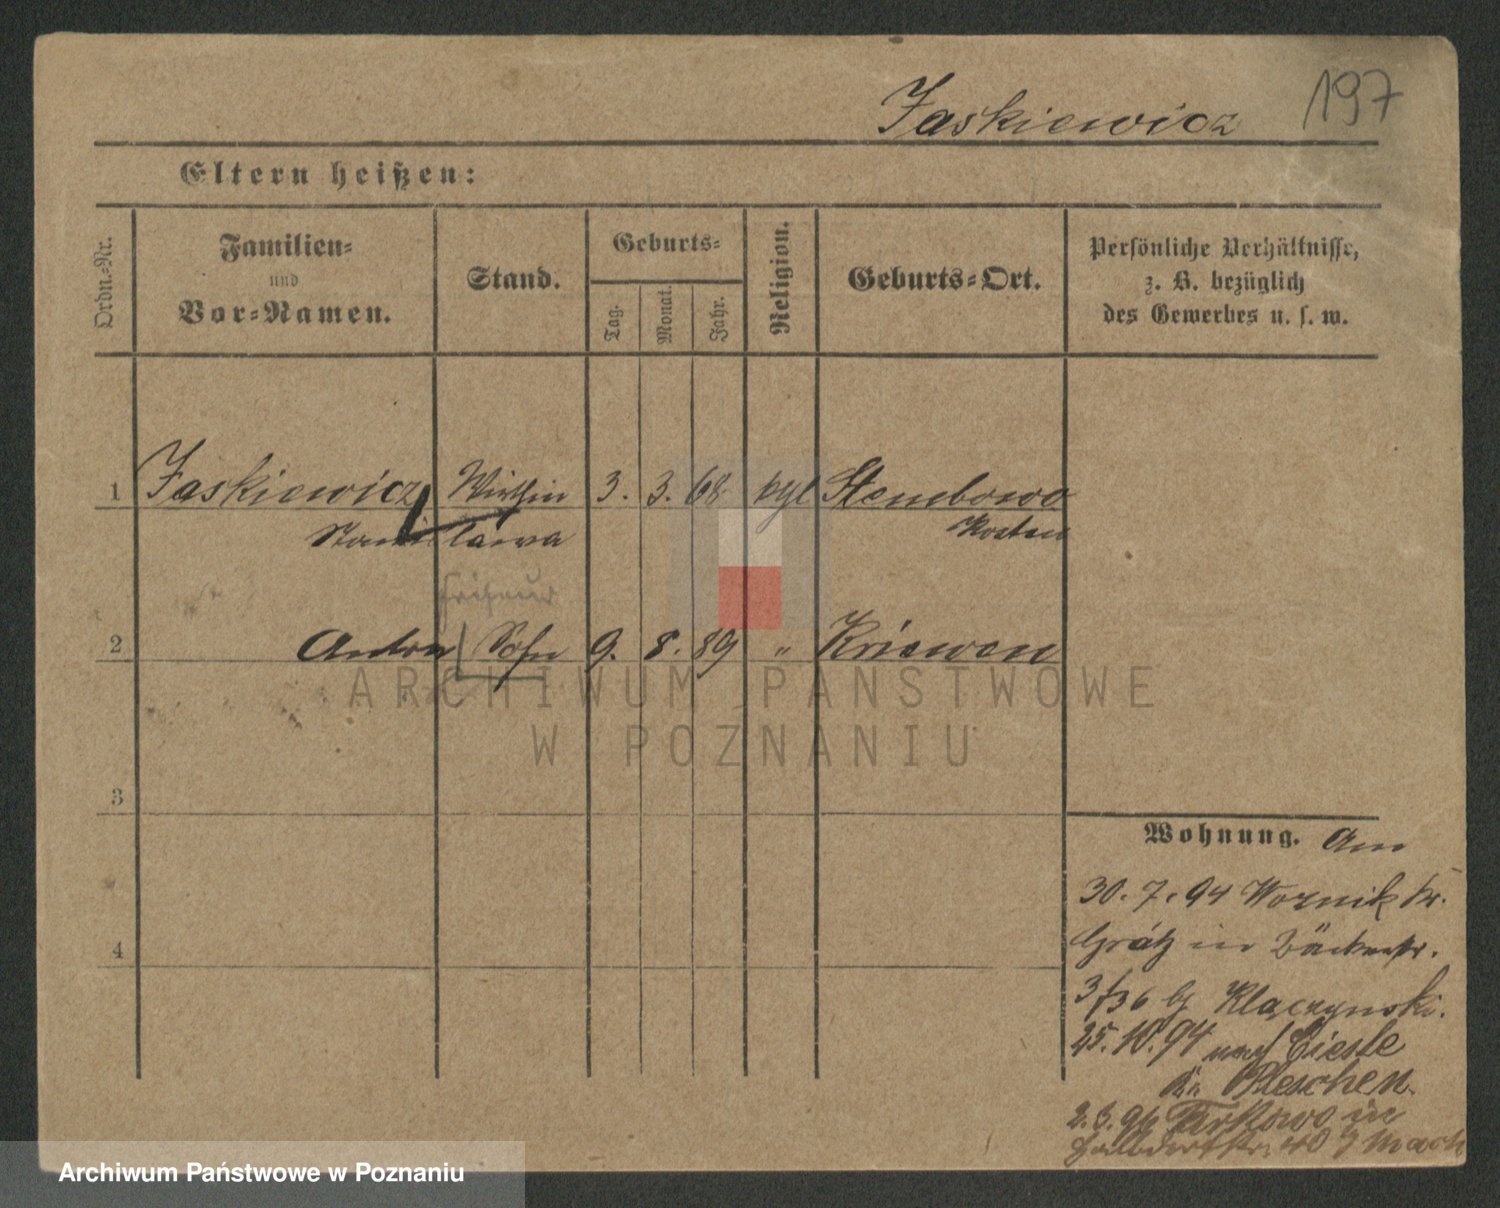 Jaskiewicz 197
Eltern heißen:
Ordn.-Nr.
Familien-
und
Vor-Namen.
Stand.
Geburts-
Tag.
Monat.
Jahr.
Religion.
Geburts-Ort.
Persönliche Verhältnisse,
z. B. bezüglich
des Gewerbes u. s. w.
1 Jaskiewicz Wirthin 3. 3. 68 Stembowo
Stanislawa Kosten
Friseur
2 Anton Sohn 9. 8. 89 " Kriewen
3
4
Wohnung. Am
30. 7. 94 Woznik Kr.
Grätz in Bäckerstr.
Klaczynski.
25. 10. 94 nach Ciesle
Kr. Pleschen.
2. 3. 96 in
Halbdorfstr. 40
ARCHIWUM PAŃSTWOWE
W POZNANIU
Archiwum Państwowe w Poznaniu